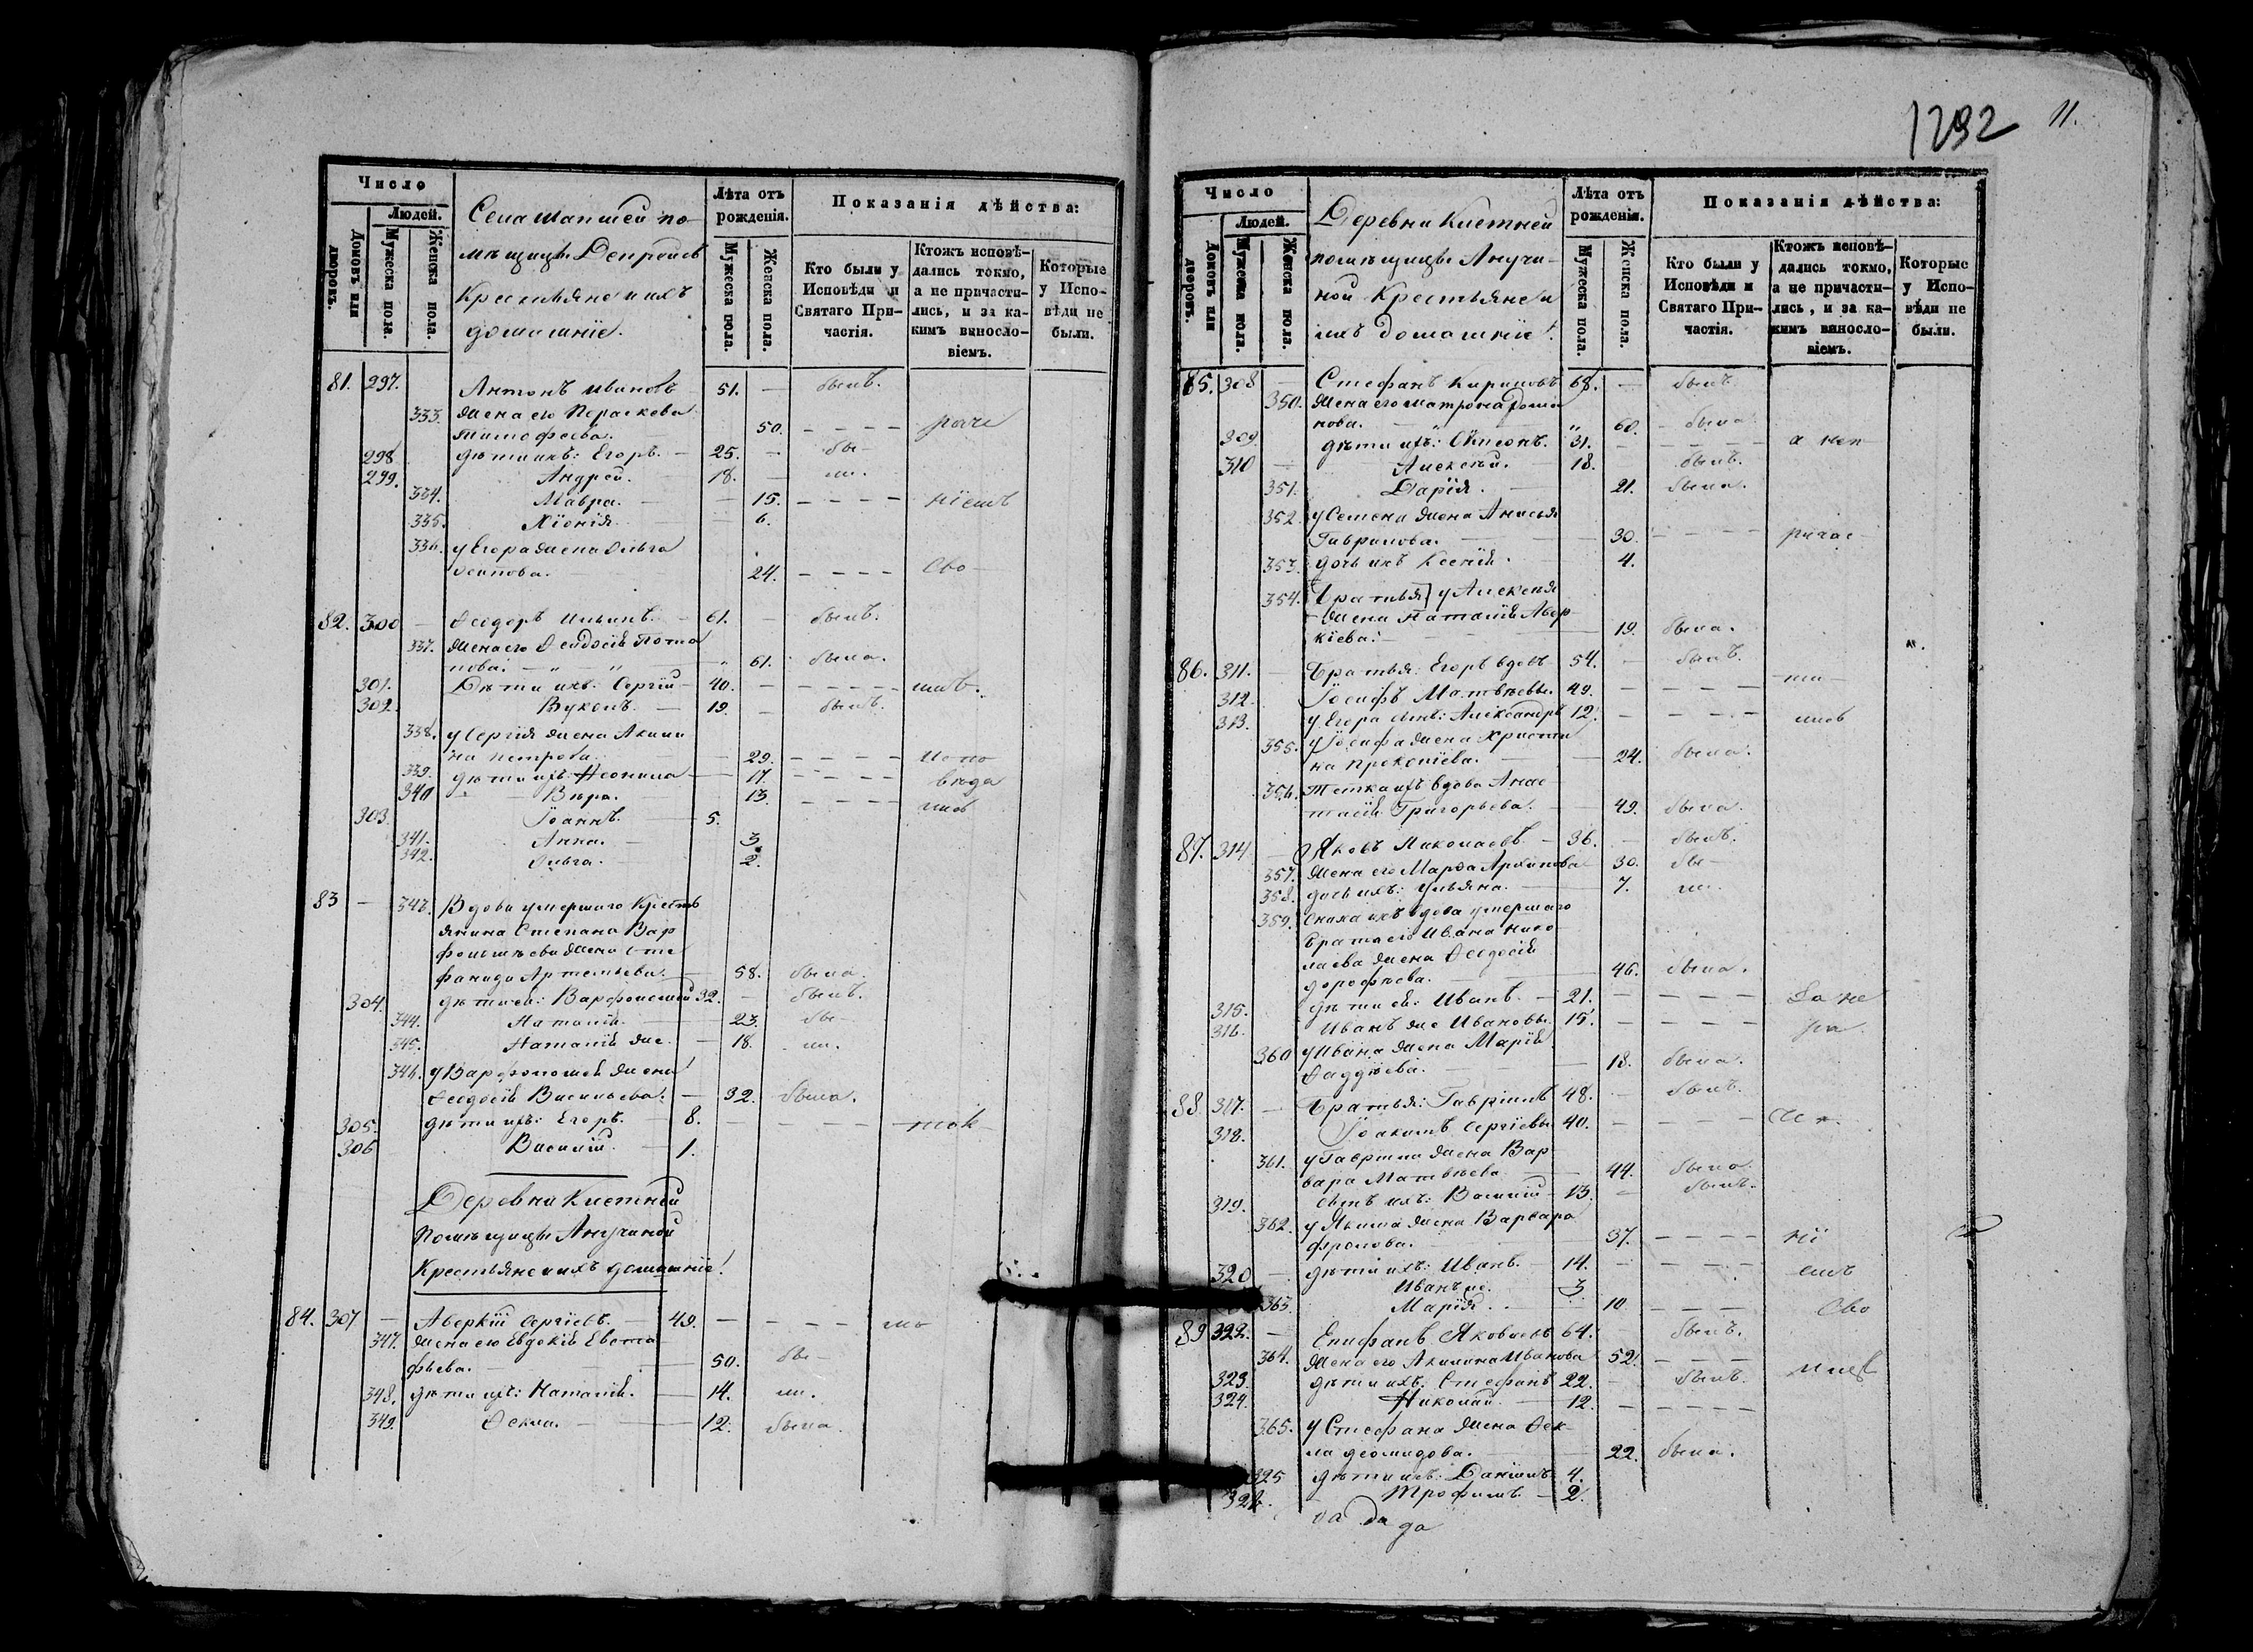 1292 11.
Число
Людей.
Домовъ или дворовъ.
Мужеска пола.
Женска пола.
Села
помѣщицы
Крестьяне и ихъ
домашніе.
Лѣта отъ рожденія.
Мужеска пола.
Женска пола.
Показанія дѣйства:
Кто были у Исповѣди и Святаго Причастія.
Ктожъ исповѣдались токмо, а не причастились, и за какимъ винословіемъ.
Которые у Исповѣди не были.
81. 297. Антонъ Ивановъ 51. — былъ.
333. жена его Параскева
Тимофеева. 50. – – – –
298 дѣти ихъ: Егоръ. — 25. — бы—
299. Андрей. 18. — ли.
334. Мавра. — 15. – – – –
335. 6.
336. у Егора жена Ольга
Осипова. 24. – – – – Сво
82. 300 — Ѳеодоръ Ильинъ. 61. — былъ.
337. жена его Ѳеодосія Пота
пова. 61. была.
301. Дѣти ихъ: Сергій — 40. – – – –
302. Вуколъ. — 19. — былъ.
338. у Сергія жена Акили
на Петрова. 29. – – – – Испо
339. дѣти ихъ: Неонила — 17. – – – – вѣда
340 Вѣра. 13. – – – –
303. Іоаннъ. 5.
341. Анна. — 3.
342. Ольга. — 2.
83 — 343. Вдова умершаго Кресть
янина Степана Вар
фоломѣева жена Сте
фанида Артемьева. 58. была.
304. дѣти ея: Варфоломей 32. — былъ.
344. Наталія. 23. бы—
345. Наталія же. — 18. ли.
346. у Варфоломея жена
Ѳеодосія Васильева. — 32. была.
305. дѣти ихъ: Егоръ. — 8. – – – – ток
306 Василій. — 1.
Деревни Кистней
Помѣщицы Анучиной
Крестьяне и ихъ домашніе.
84. 307 — Аверкій Сергіевъ. — 49. – – – – мо
347. жена его Евдокія Евста
фьева. 50. бы—
348. дѣти ихъ: Наталія. — 14. ли.
349. Ѳекла. 12. была.
Число
Людей.
Домовъ или дворовъ.
Мужеска пола.
Женска пола.
Деревни Кистней
помѣщицы Анучи-
ной Крестьяне и
ихъ домашніе.
Лѣта отъ рожденія.
Мужеска пола.
Женска пола.
Показанія дѣйства:
Кто были у Исповѣди и Святаго Причастія.
Ктожъ исповѣдались токмо, а не причастились, и за какимъ винословіемъ.
Которые у Исповѣди не были.
85. 308 — Стефанъ Кириловъ 68. — былъ.
350. жена его Матрона
нова. 60. была.
309. дѣти ихъ: Симеонъ. 31. – – – – а неп
310 — Алексѣй. — 18. былъ.
351. Дарія. 21. была.
352. у Семена жена Анисья
Гаврилова. 30. – – – – ричас
353. дочь ихъ Ксенія. 4.
354. Братья у Алексѣя
жена Наталія Авер
кіева. 19. была.
86. 311. — Братья: Егоръ вдовъ 54. — былъ.
312. Іосифъ Матвѣевы. 49. – – – –
313. у Егора сынъ: Александръ 12. – – – –
355. у Іосифа жена Христи
на Прокопіева. 24. была.
356. Тетка ихъ вдова Анас
тасія Григорьева. 49. была.
87. 314 — Яковъ Николаевъ — 36. — былъ.
357. жена его Марѳа Архипова 30. бы—
358. дочь ихъ: Ульяна. 7. ли.
359. Сноха ихъ вдова умершаго
брата его Ивана Нико
лаева жена Ѳеодосія
Дорофѣева. 46. была.
315. дѣти ея: Иванъ. — 21. – – – – За не
316. Иванъ же Ивановы. 15. – – – –
360 у Ивана жена Марія
Ѳаддѣева. 18. была.
88. 317. — Братья: Гавріилъ 48. — былъ.
318. Іоакимъ Сергіевы 40. – – – –
361. у Гавріила жена Вар
вара Матвѣева 44. была.
319. сынъ ихъ: Василій — 13. — былъ.
362. у Якима жена Варвара
Фролова. 37. – – – – ні
320 дѣти ихъ: Иванъ. — 14. – – – –
Иванъ же. 3
363. Марія. 10. – – – Сво
89 322. — Епифанъ Яковлевъ 64. былъ.
364. Жена его Акилина Иванова 52. – – –
323. дѣти ихъ: Стефанъ 22. — былъ.
324. Николай. 12. – – – –
365. у Стефана жена Ѳек
ла Діомидова. 22. была.
325 дѣти ихъ: Даніилъ 4.
326. Трофимъ. — 2.